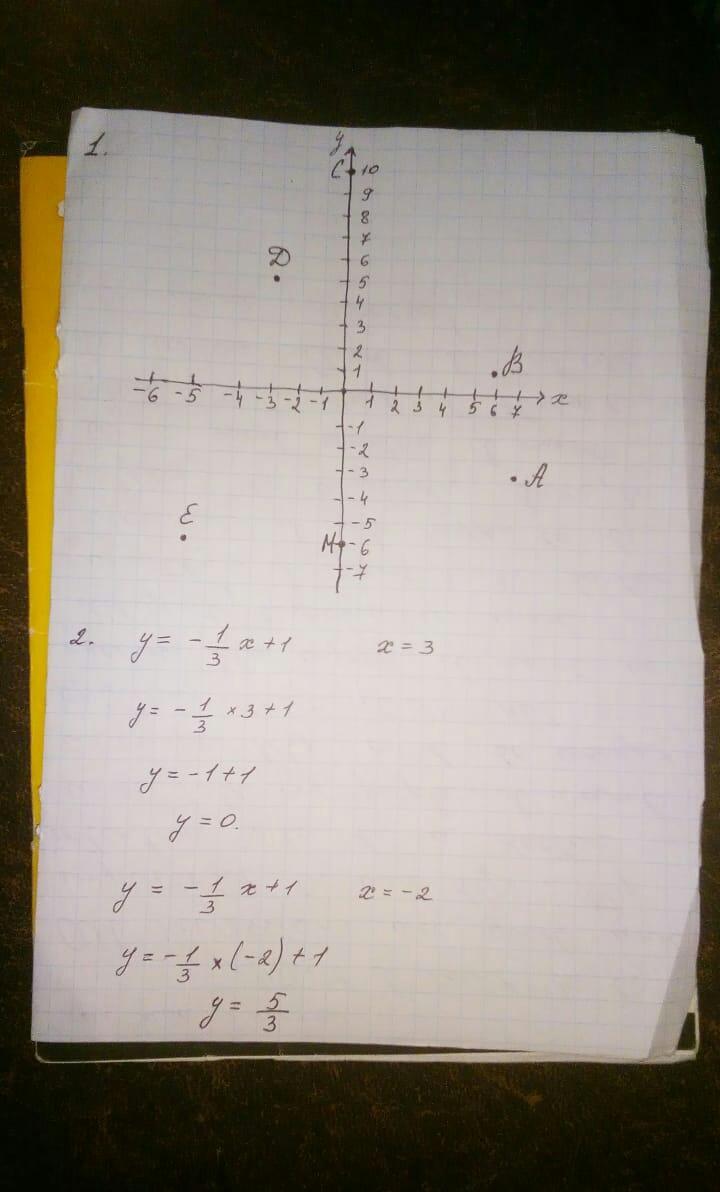 1.
y
C 10
9
8
7
Д 6
5
4
3
2
1 B
-6 -5 -4 -3 -2 -1 1 2 3 4 5 6 7 x
-1
-2
-3 A
-4
E -5
M -6
-7
2. y = -1/3 x + 1 x = 3
y = -1/3 × 3 + 1
y = -1 + 1
y = 0.
y = -1/3 x + 1 x = -2
y = -1/3 × (-2) + 1
y = 5/3